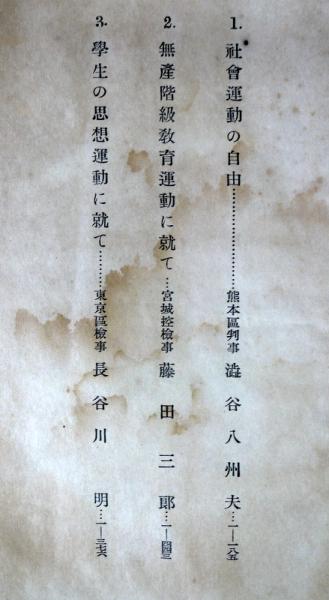 1. 社會運動の自由……………………熊本區判事 澁谷八州夫…一—一八五
2. 無產階級敎育運動に就て…宮城控檢事 藤田三郞…一—四四三
3. 學生の思想運動に就て………東京區檢事 長谷川明…一—三七六